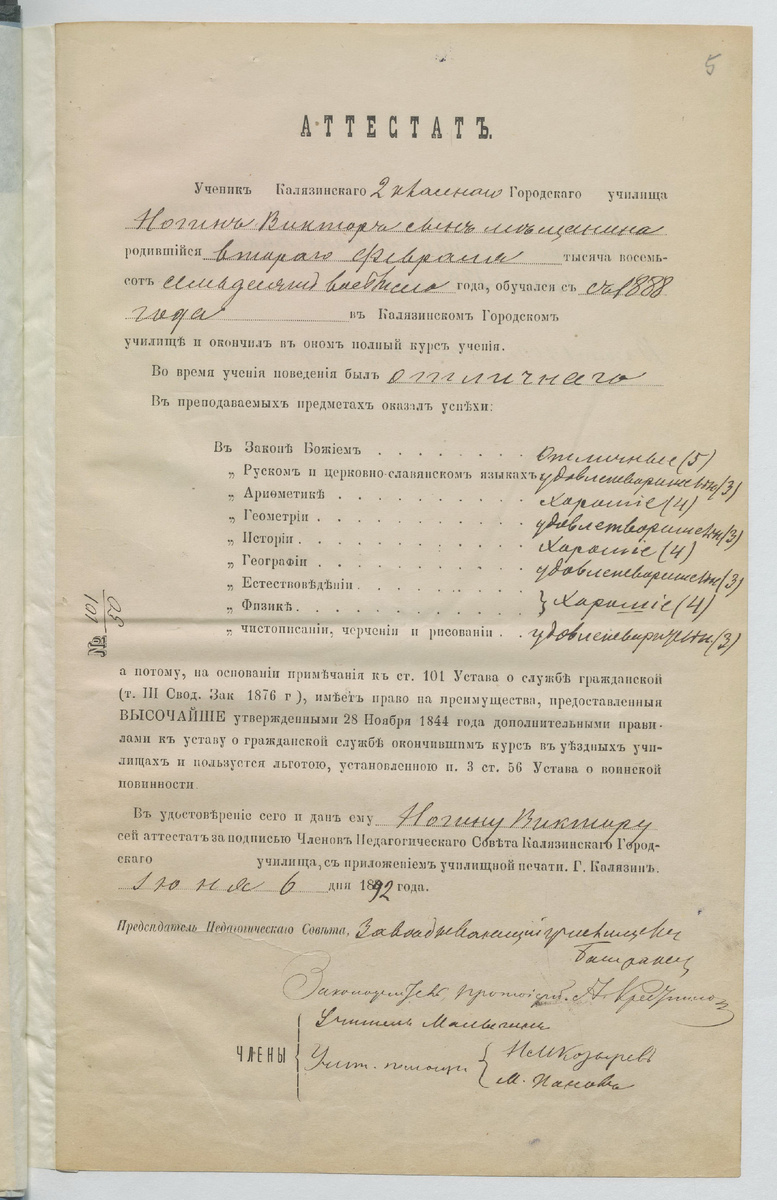 5
АТТЕСТАТЪ.
Ученикъ Калязинскаго 2 класснаго Городскаго училища
Ногинъ Викторъ сынъ мѣщанина
родившійся втораго Февраля тысяча восемь-
сотъ семьдесятъ восьмаго года, обучался съ съ 1888
года въ Калязинскомъ Городскомъ
училищѣ и окончилъ въ ономъ полный курсъ ученія.
Во время ученія поведенія былъ отличнаго
Въ преподаваемыхъ предметахъ оказалъ успѣхи:
Въ Законѣ Божіемъ . . . . . . . отличные (5)
„ Рускомъ и церковно-славянскомъ языкахъ удовлетворительн (3)
„ Ариѳметикѣ . . . . . . . . хорошіе (4)
„ Геометріи . . . . . . . . . удовлетворительн (3)
„ Исторіи . . . . . . . . . . хорошіе (4)
„ Географіи . . . . . . . . . удовлетворительн (3)
„ Естествовѣдѣніи . . . . . . .
„ Физикѣ . . . . . . . . . . } хорошіе (4)
„ чистописаніи, черченіи и рисованіи . . удовлетворительн. (3)
№ 95/101
а потому, на основаніи примѣчанія къ ст. 101 Устава о службѣ гражданской
(т. III Свод. Зак 1876 г), имѣетъ право на преимущества, предоставленныя
ВЫСОЧАЙШЕ утвержденными 28 Ноября 1844 года дополнительными прави-
лами къ уставу о гражданской службѣ окончившимъ курсъ въ уѣздныхъ учи-
лищахъ и пользуется льготою, установленною п. 3 ст. 56 Устава о воинской
повинности.
Въ удостовѣреніе сего и данъ ему Ногину Виктору
сей аттестатъ за подписью Членовъ Педагогическаго Совѣта Калязинскаго Город-
скаго училища, съ приложеніемъ училищной печати. Г. Калязинъ.
Іюня 6 дня 1892 года.
Предсѣдатель Педагогическаго Совѣта, Завѣдывающій училищемъ
Законоучитель, протоіерей А.
ЧЛЕНЫ { Учитель Малыгинъ
Учит. помощн { Козыревъ
М. Пановъ